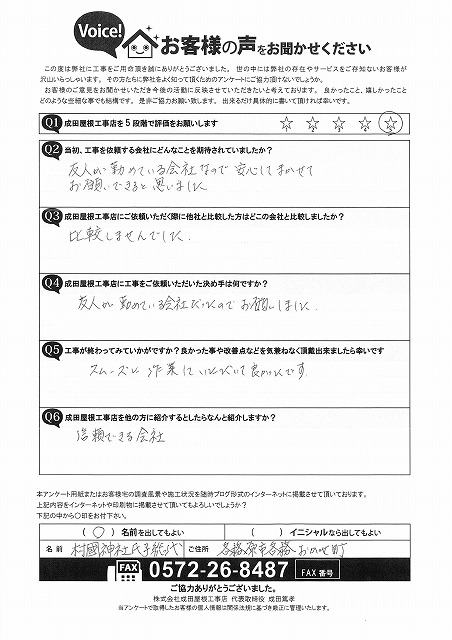 Voice!
お客様の声をお聞かせください
この度は弊社に工事をご用命頂き誠にありがとうございました。世の中には弊社の存在やサービスをご存知ないお客様が
沢山いらっしゃいます。その方たちに弊社をよく知って頂くためのアンケートにご協力頂けないでしょうか。
お客様のご意見をお聞かせいただき今後の活動に反映させていただきたいと考えております。良かったこと、嬉しかったこと
どのような些細な事でも結構です。是非ご協力お願い致します。出来るだけ具体的に書いて頂ければ幸いです。
Q1 成田屋根工事店を5段階で評価をお願いします ☆ ☆ ☆ ☆ ☆
Q2 当初、工事を依頼する会社にどんなことを期待されていましたか?
友人が勤めている会社なので安心してまかせて
お願いできると思いました
Q3 成田屋根工事店にご依頼いただく際に他社と比較した方はどこの会社と比較しましたか?
比較しませんでした.
Q4 成田屋根工事店に工事をご依頼いただいた決め手は何ですか?
友人が勤めている会社だったのでお願いしました.
Q5 工事が終わってみていかがですか?良かった事や改善点などを気兼ねなく頂戴出来ましたら幸いです
スムーズに作業していただいて良かったです.
Q6 成田屋根工事店を他の方に紹介するとしたらなんと紹介しますか?
信頼できる会社
本アンケート用紙またはお客様宅の調査風景や施工状況を随時ブログ形式のインターネットに掲載させて頂いております。
上記内容をインターネットや印刷物に掲載させて頂いてもよろしいでしょうか?
下記の中から〇印をお付下さい。
(〇)名前を出してもよい ( )イニシャルなら出してもよい
名前 村國神社氏子総代 ご住所 各務原市各務おがせ町
FAX 0572-26-8487 FAX番号
ご協力ありがとうございました。
株式会社成田屋根工事店 代表取締役 成田篤孝
※アンケートで取得したお客様の個人情報は関係法規に基づき厳正に管理いたします。